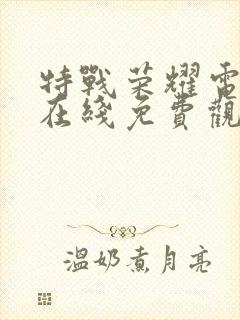 特戰荣耀電
在綫免費觀
温奶煮月亮